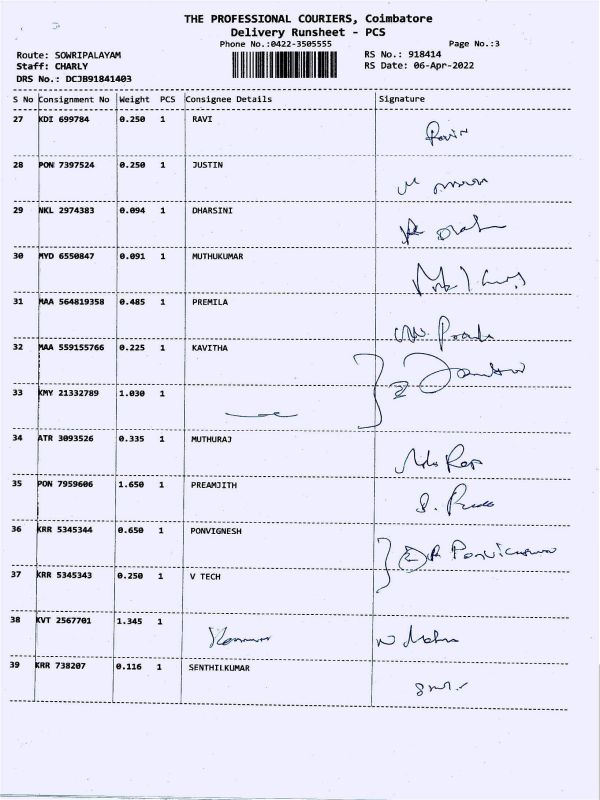 THE PROFESSIONAL COURIERS, Coimbatore
Delivery Runsheet - PCS
Phone No.:0422-3505555 Page No.:3
Route: SOWRIPALAYAM RS No.: 918414
Staff: CHARLY RS Date: 06-Apr-2022
DRS No.: DCJB91841403
S No Consignment No Weight PCS Consignee Details Signature
27 KDI 699784 0.250 1 RAVI
28 PON 7397524 0.250 1 JUSTIN
29 NKL 2974383 0.094 1 DHARSINI
30 MYD 6550847 0.091 1 MUTHUKUMAR
31 MAA 564819358 0.485 1 PREMILA
32 MAA 559155766 0.225 1 KAVITHA
33 KMY 21332789 1.030 1
34 ATR 3093526 0.335 1 MUTHURAJ
35 PON 7959606 1.650 1 PREAMJITH
36 KRR 5345344 0.650 1 PONVIGNESH
37 KRR 5345343 0.250 1 V TECH
38 KVT 2567701 1.345 1
39 KRR 738207 0.116 1 SENTHILKUMAR